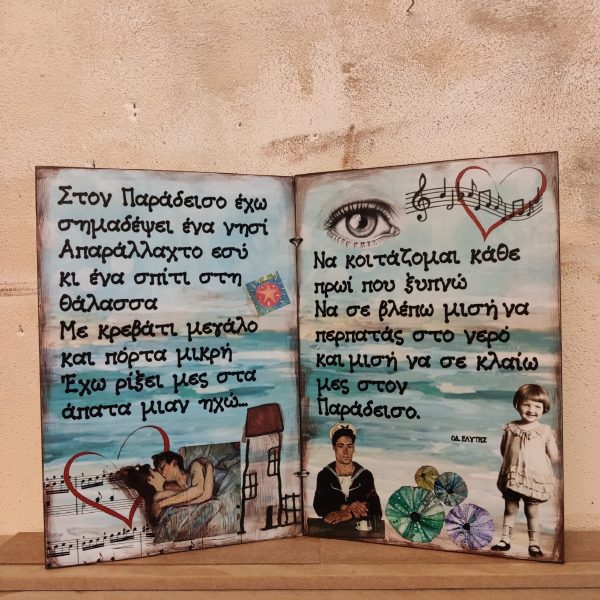 Στον Παράδεισο έχω
σημαδέψει ένα νησί
Απαράλλαχτο εσύ
κι ένα σπίτι στη
θάλασσα
Με κρεβάτι μεγάλο
και πόρτα μικρή
Έχω ρίξει μες στα
άπατα μιαν ηχώ...
Να κοιτάζομαι κάθε
πρωί που ξυπνώ
Να σε βλέπω μισή να
περπατάς στο νερό
και μισή να σε κλαίω
μες στον
Παράδεισο.
ΟΔ. ΕΛΥΤΗΣ